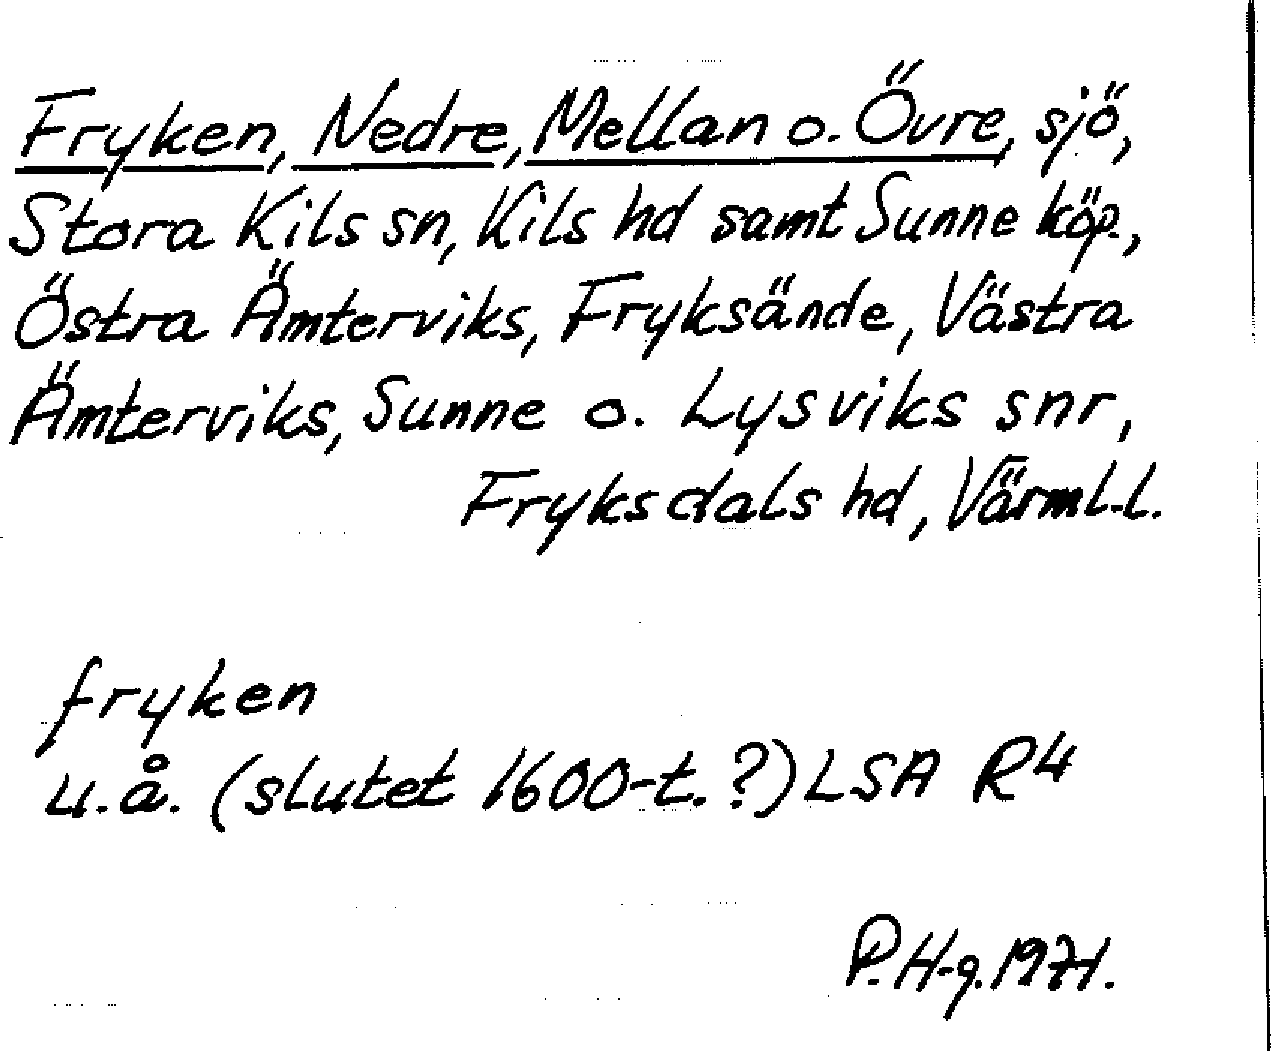 Fryken, Nedre, Mellan o. Övre, sjö,
Stora Kils sn, Kils hd samt Sunne köp.,
Östra Ämterviks, Fryksände, Västra
Ämterviks, Sunne o. Lysviks snr,
Fryksdals hd, Värml.l.
fryken
u.å. (slutet 1600-t.?) LSA R4
P.H-g. 1971.